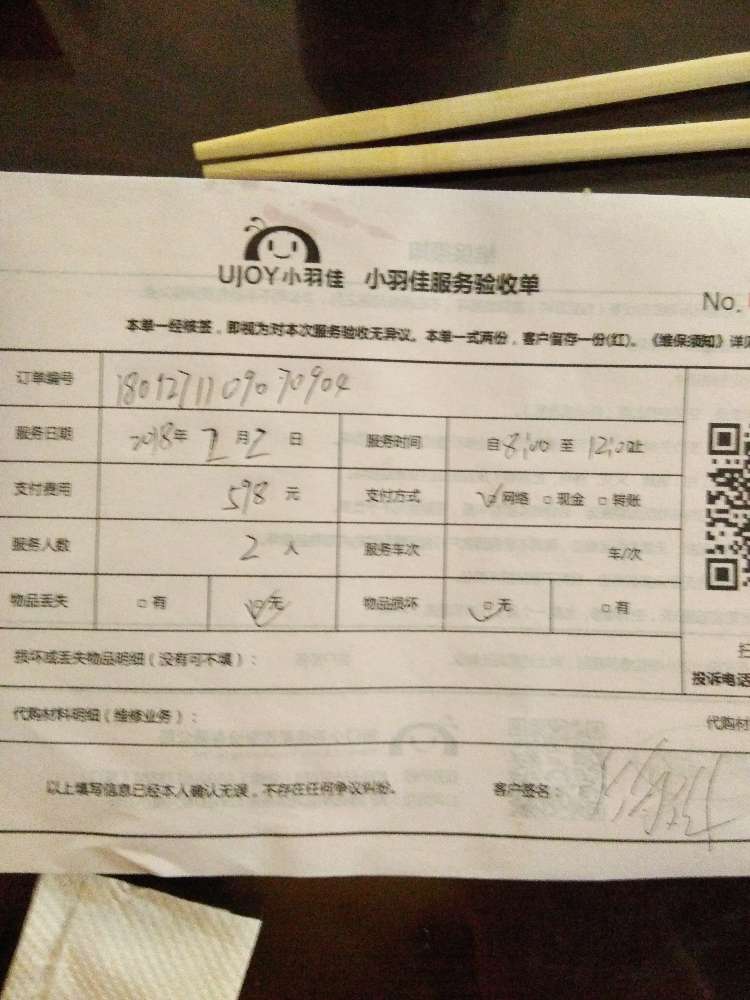 UJOY小羽佳 小羽佳服务验收单
No.
本单一经核签，即视为对本次服务验收无异议。本单一式两份，客户留存一份(红)。《维保须知》详见
订单编号 1801271109070904
服务日期 2018年 2月2日 服务时间 自8:00至12:00止
支付费用 598元 支付方式 网络 现金 转账
服务人数 2人 服务车次 车/次
物品丢失 有 无 物品损坏 无 有
损坏或丢失物品明细（没有可不填）：
投诉电话
代购材料明细（维修业务）： 代购材
以上填写信息已经本人确认无误，不存在任何争议纠纷。 客户签名：